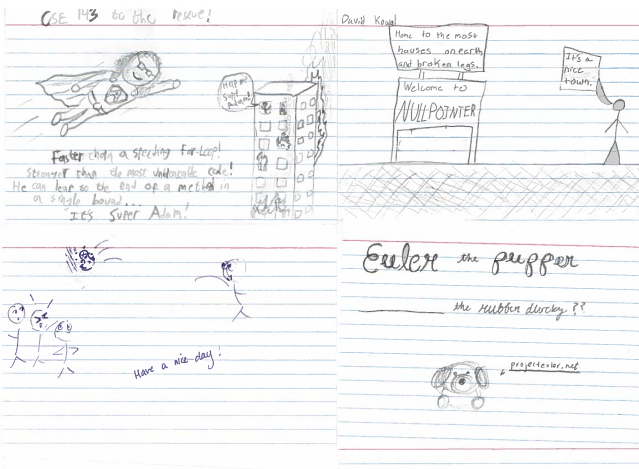 CSE 143 to the rescue!
Help me
Super
Adam!
Faster than a speeding for-loop!
Stronger than the most unbreakable code!
He can leap to the end of a method in
a single bound...
It's Super Adam!
David
Home to the most
houses on earth
and broken legs.
Welcome to
NULLPOINTER
It's a
nice
town.
Have a nice day!
Euler the pupper
the rubber ducky??
projecteuler.net